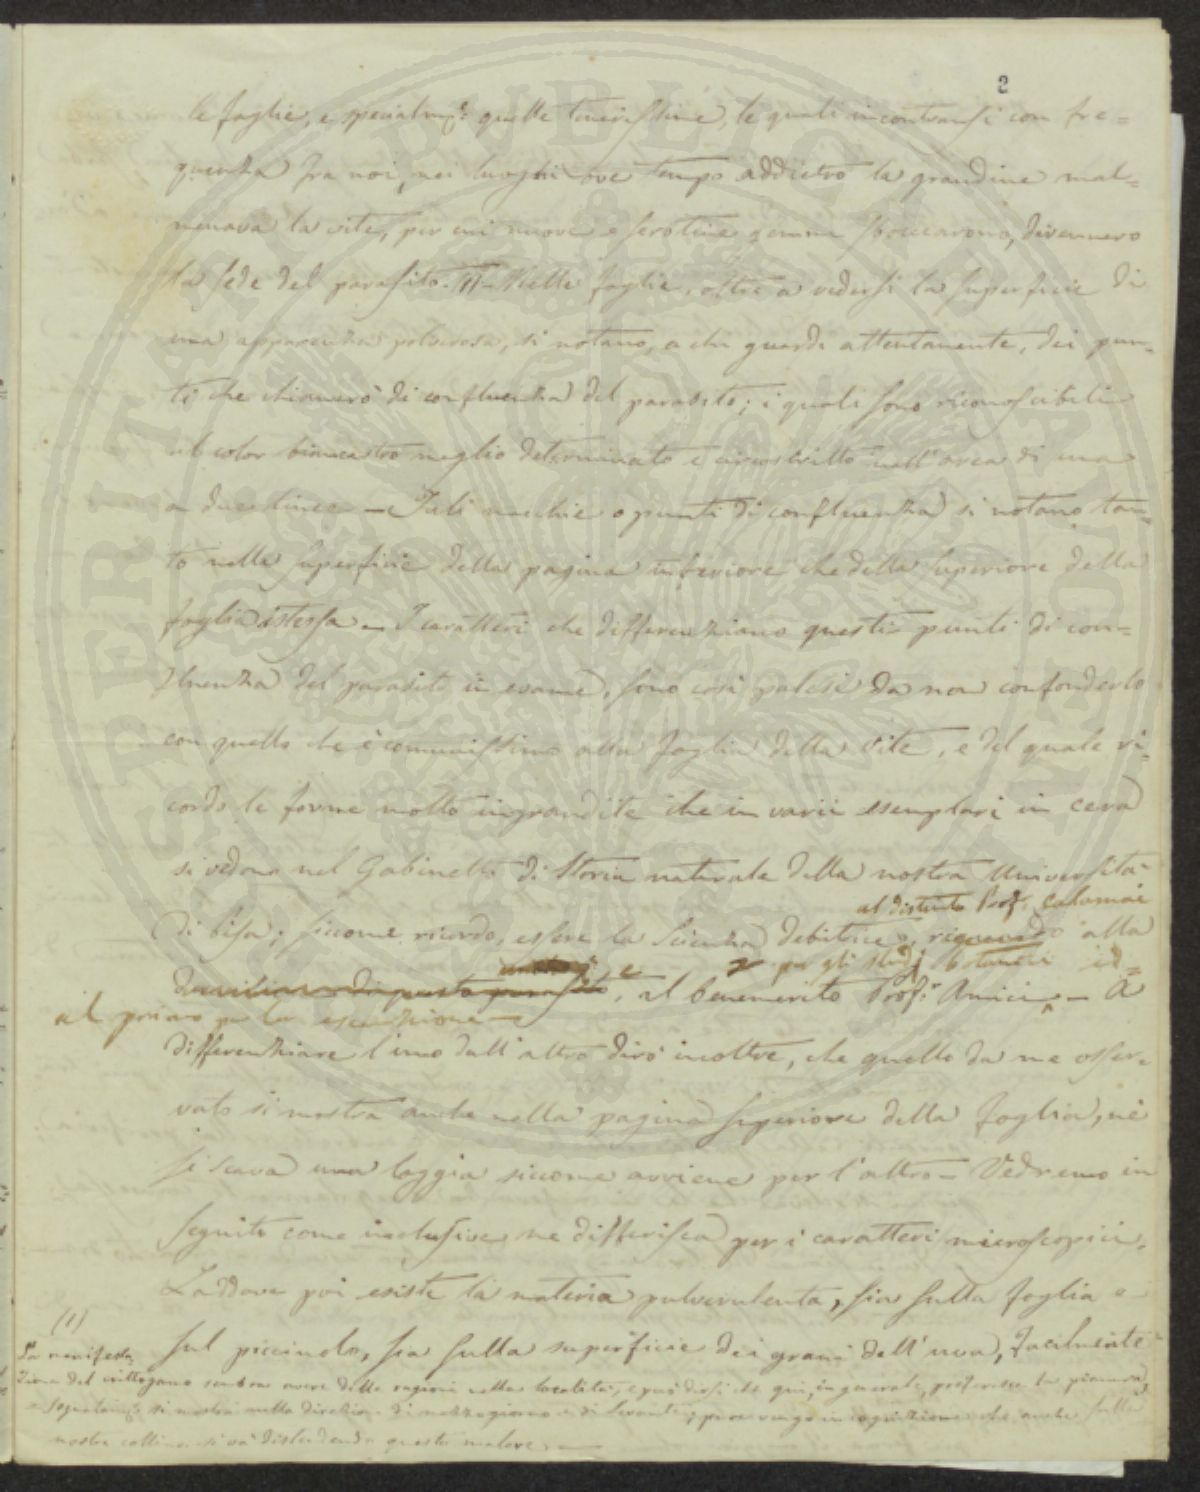 2
le foglie, e specialmte quelle tenerissime, le quali incontransi con fre=
quenza fra noi, nei luoghi ove tempo addietro la grandine mal=
menava la vite, per cui nuove e serotine gemme sbocciarono, divennero
la sede del parassito. Nelle foglie, oltre a vedersi la superficie di
una apparenza polverosa, si notano, a chi guardi attentamente, dei pun=
ti che chiamerò di confluenza del parassito; i quali sono riconoscibili
al color biancastro meglio determinato e circoscritto nell'area di una
o due linee — Tali macchie o punti di confluenza si notano tan=
to nella superficie della pagina inferiore che della superiore della
foglia istessa — I caratteri che differenziano questi punti di con=
fluenza del parassito in esame, sono così palesi da non confonderlo
con quello che è comunissimo alla foglia della vite, e del quale ri=
cordo le forme molto ingrandite che in varii esemplari in cera
si vedono nel Gabinetto di Storia naturale della nostra Università
al distinto Prof. Calamai
di Pisa; siccome ricordo, essere la Scienza debitrice, riguardo alla
e per gli studj botanici ed=
, al benemerito Profr Amici — A
al primo per la esecuzione —
differenziare l'uno dall'altro dirò inoltre, che quello da me osser=
vato si mostra anche nella pagina superiore della foglia, nè
si scava una loggia siccome avviene per l'altro — Vedremo in
seguito come inclusive ne differisca per i caratteri microscopici.
Laddove poi esiste la materia pulverulenta, sia sulla foglia e
sul picciuolo, sia sulla superficie dei grani dell'uva, facilmente
(1)
La manifesta
zione del crittogamo sembra avere delle ragioni nella località, e può dirsi che qui, in generale, preferisce la pianura,
e segnatamte si mostra nella direzione di mezzogiorno e di levante; pure vengo in cognizione che anche sulle
nostre colline si va distendendo questo malore —
SPERITAS PUBLICAE